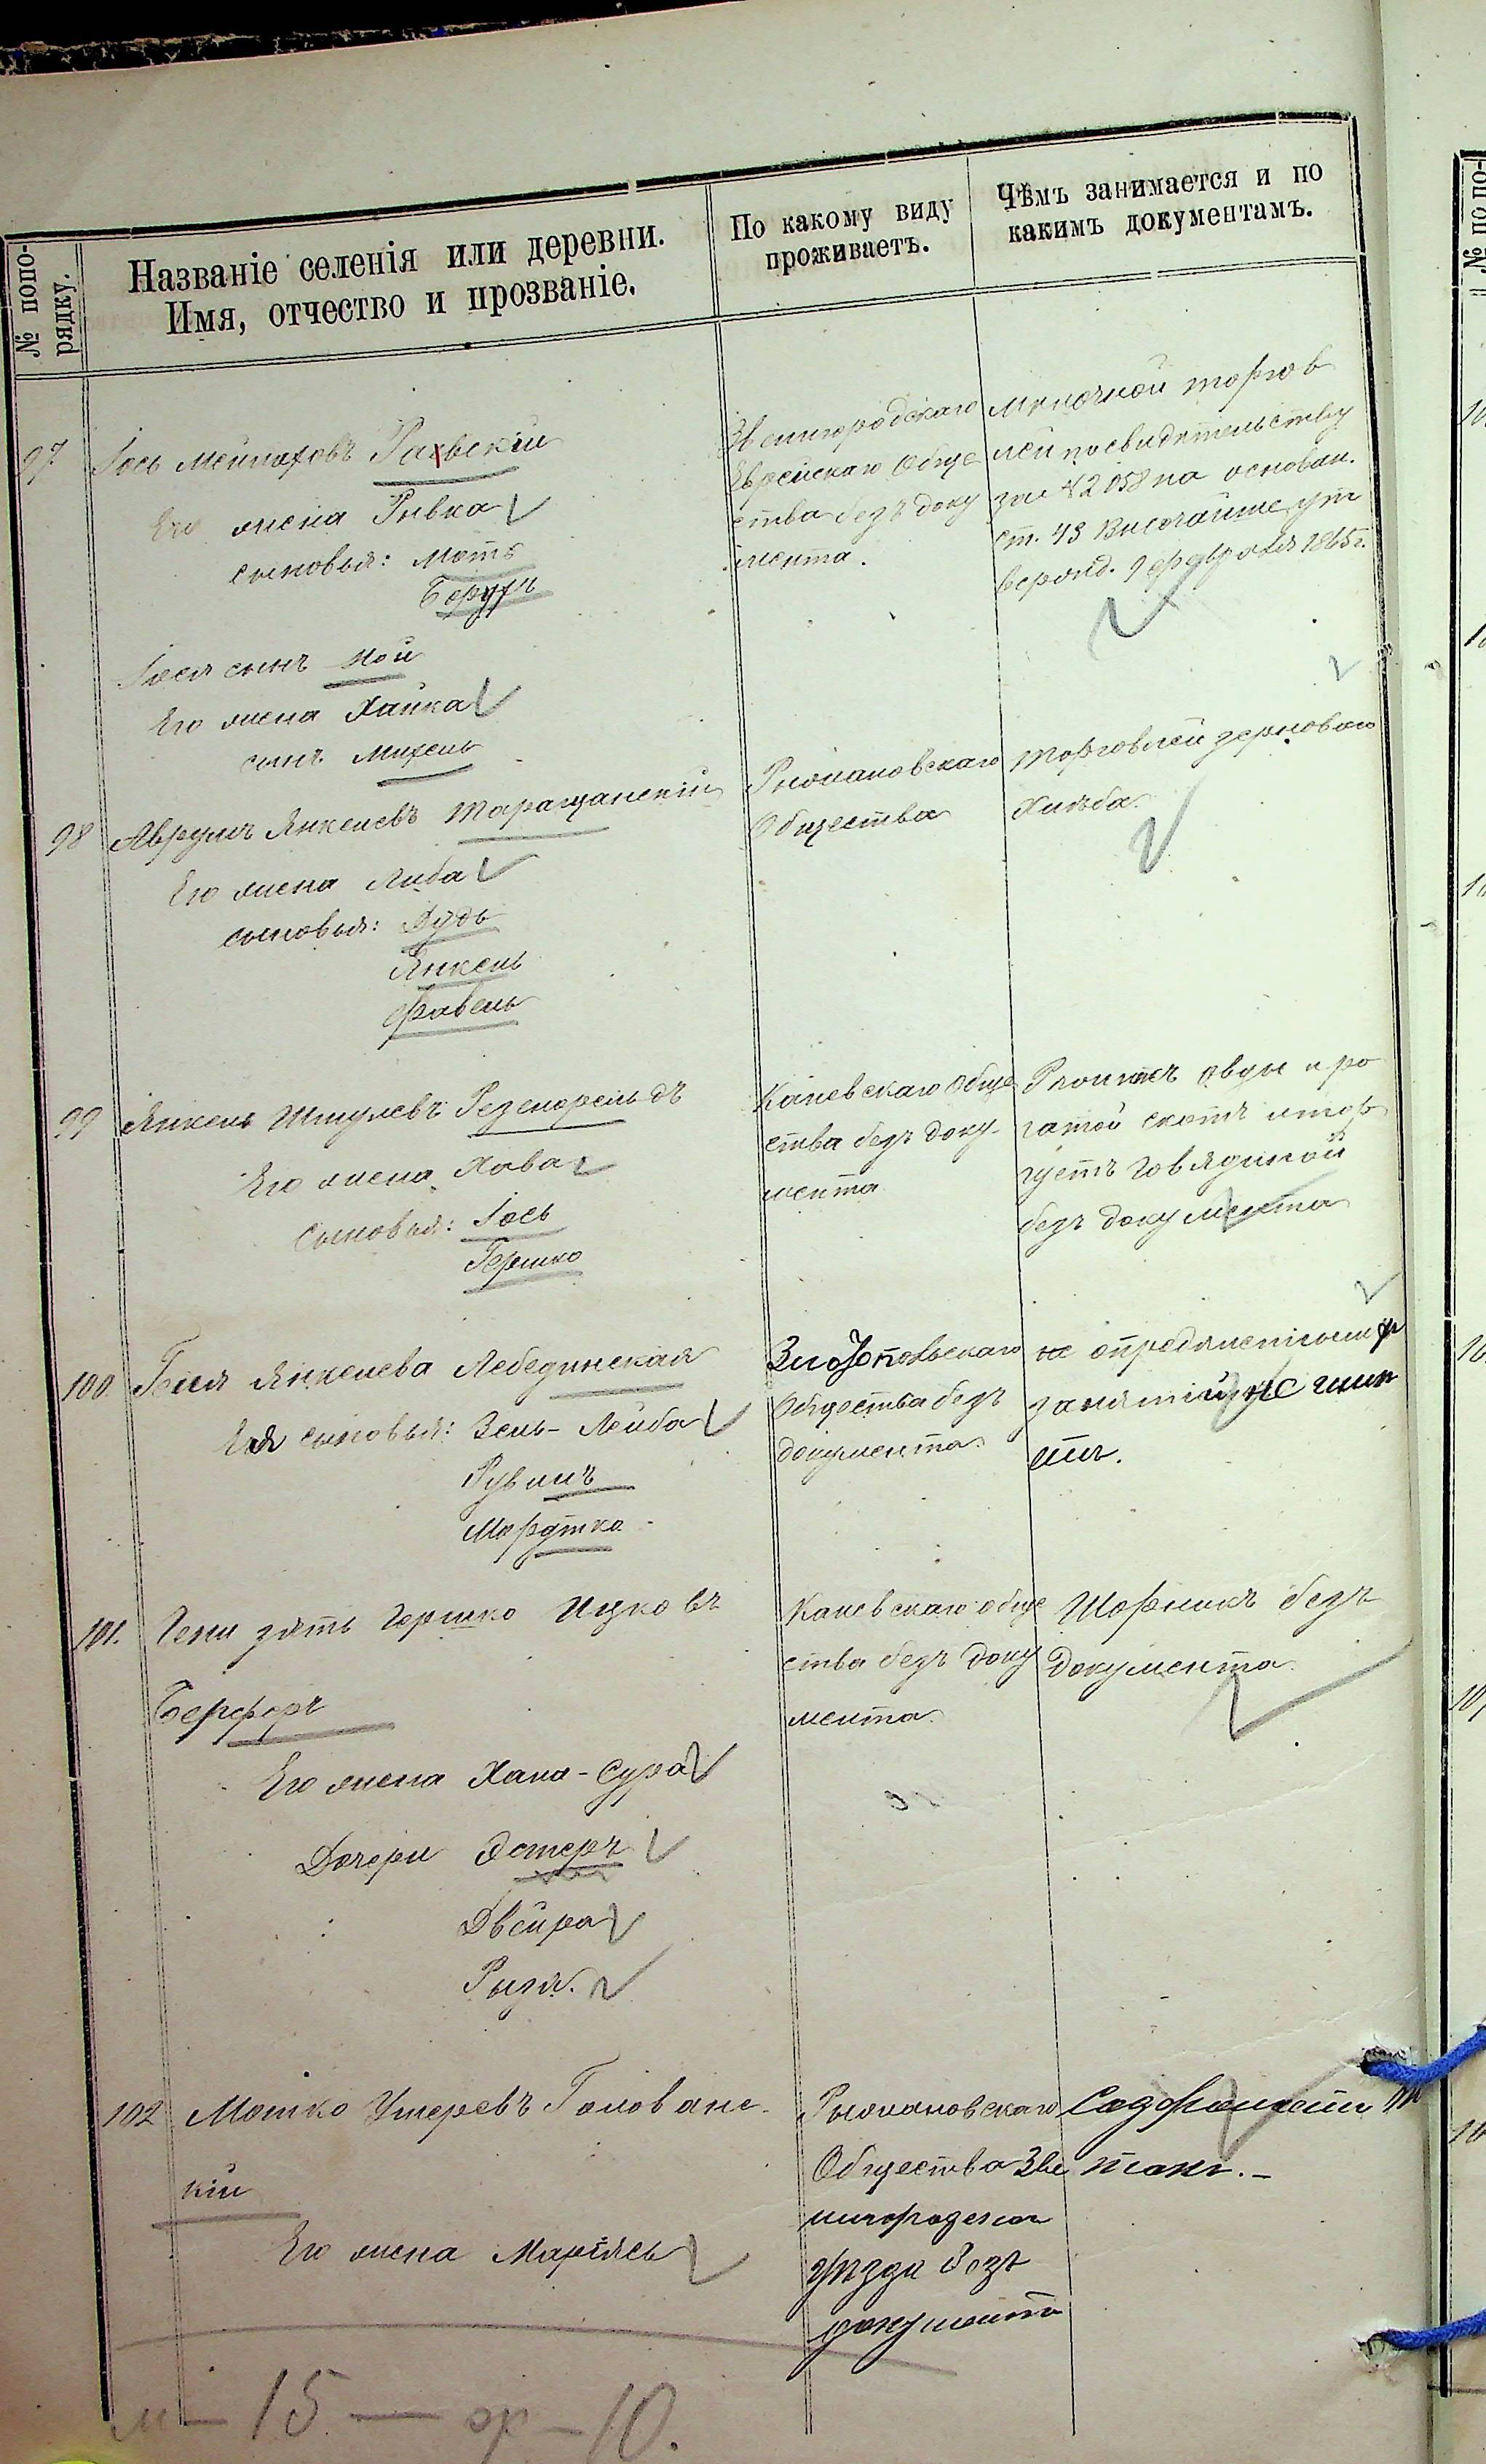 № попо-
рядку.
Названіе селенія или деревни.
Имя, отчество и прозваніе.
По какому виду
проживаетъ.
Чѣмъ занимается и по
какимъ документамъ.
97
Іось Мейлаховъ
Его жена Рывка
сыновья: Моть
Берухъ
Іося сынъ Ной
Его жена Хайка
сынъ Михель
Звенигородскаго
Еврейскаго Обще
ства безъ доку
мента.
Мелочной торгов
лей по свидѣтельству
за № 2058 на основан.
ст. 43 Высочайше ут
вержд. 9 февраля 1865 г.
98
Аврумъ Янкелевъ Таращанскій
Его жена Либа
сыновья: Дудь
Янкель
Файвель
Рыжановскаго
Общества
Торговлей зернового
Хлѣба.
99
Янкель Шмулевъ Резенфельдъ
Его жена Хава
Сыновья: Іось
Гершко
Каневскаго Обще
ства безъ доку-
мента
овцы и ро
гатой скотъ и тор
гуетъ говядиной
безъ документа
100
Бейля Янкелева Лебединская
Ея сыновья: Зель-Лейба
Рувинъ
Мордтко
Златопольскаго
Общества безъ
документа.
не опредѣленных
занятій не имѣ
етъ.
101.
Гени зять Гершко Ицковъ
Берферъ
Его жена Хана-Сура
Дочери Эстеръ
Двейра
Рызя.
Каневскаго обще
ства безъ доку
мента.
Шорникъ безъ
документа.
102
Мошко Умеревъ Голованс-
кій
Его жена Маріясь
Рыжановскаго
Общества Зве
нигородска
уѣзда безъ
документа
Содержитъ
м - 15 - ж - 10.